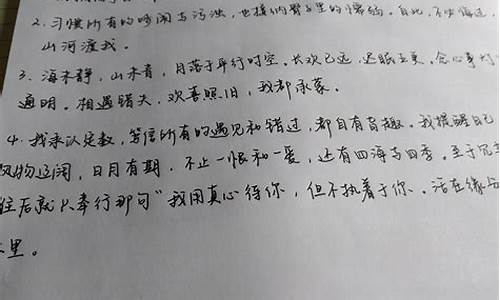 2. 习惯所有的吵闹与污浊,也接纳骨子里的懦弱。自此,不必悔过,
山河渡我。
3. 海未静,山未青,月落于平行时空。长欢已远,迟眠五更。念心事灯
通明。相遇错失,欢喜照旧,我都承蒙。
4. 我承认定数,笃信所有的遇见和错过,都自有奇趣。我提醒自己
风物辽阔,日月有期,不止一恨和一爱,还有四海与四季。至于
往后就只奉行那句“我用真心待你,但不执着于你。活在缘
里。